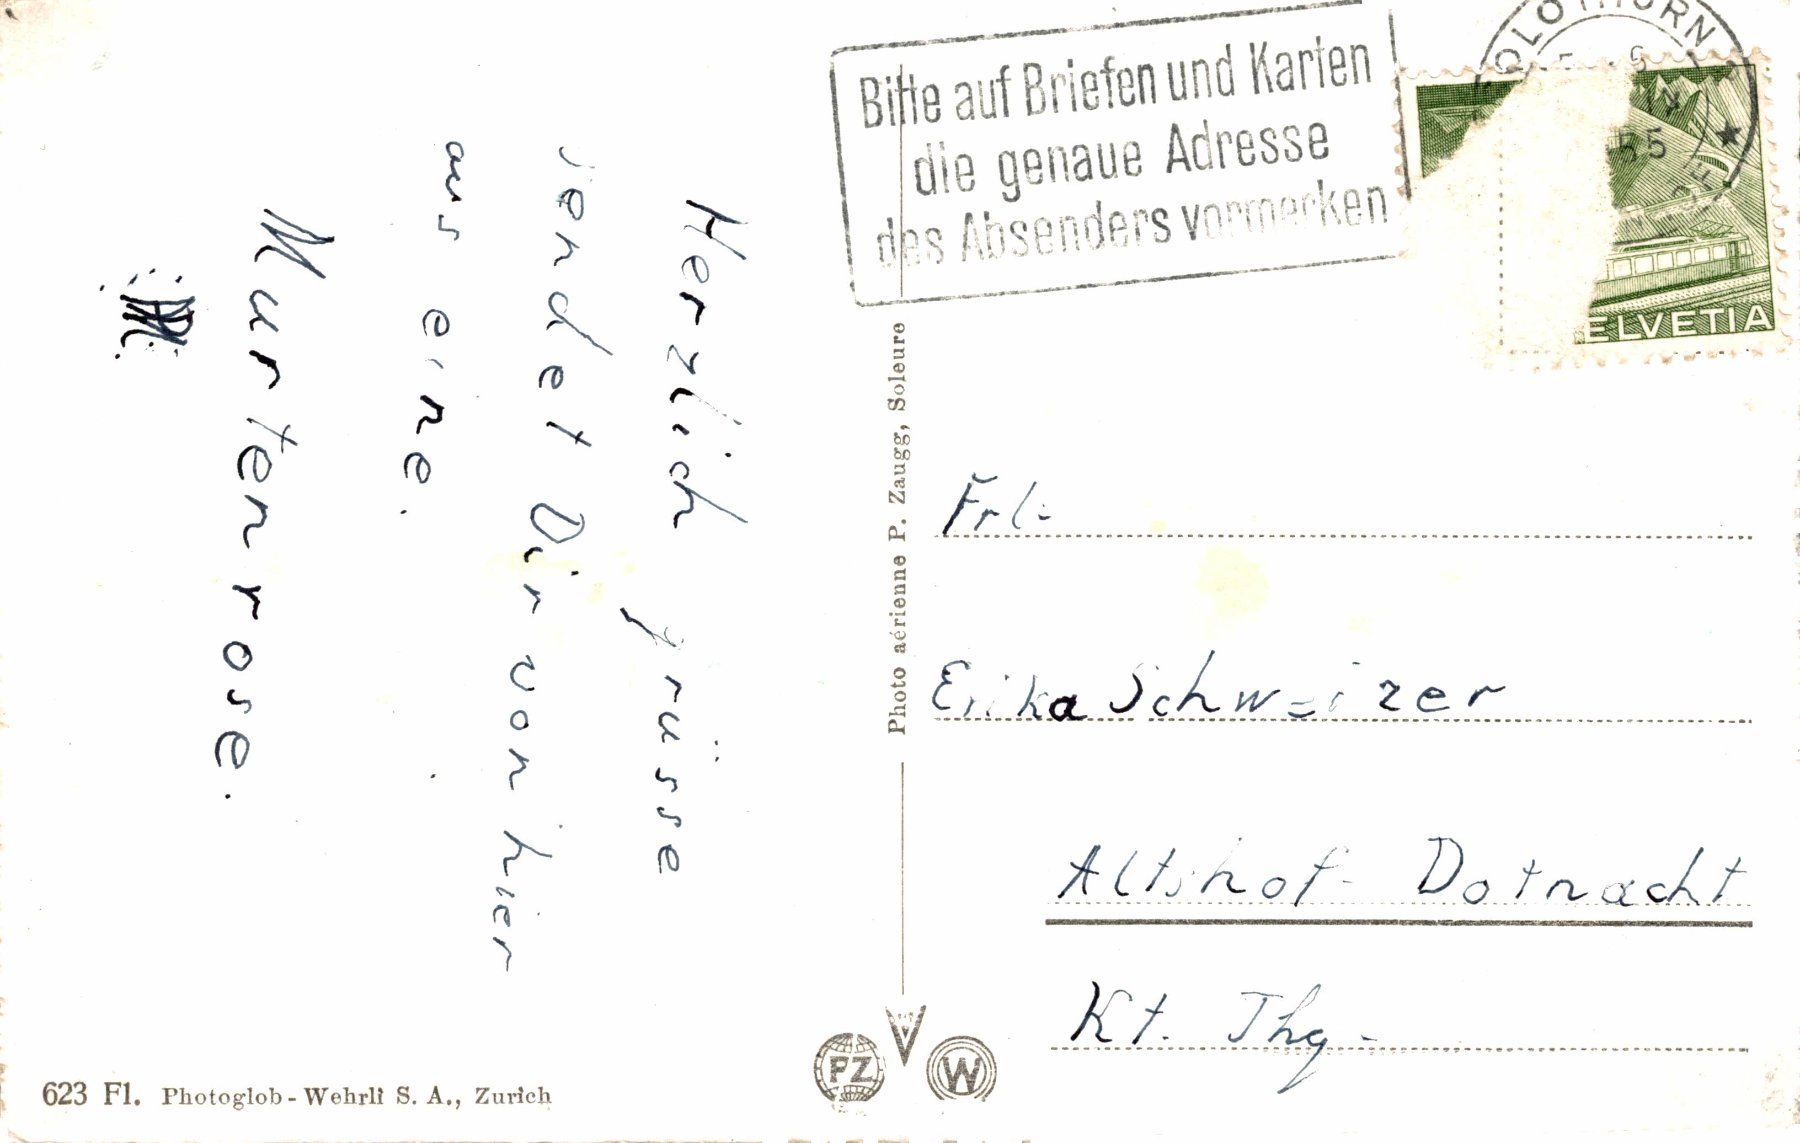 Herzlich grüsse
sendet Dir von hier
aus eine.
Murtenrose.
Bitte auf Briefen und Karten
die genaue Adresse
des Absenders vormerken
SOLOTHURN
55
HELVETIA
Frl.
Erika Schweizer
Altshof- Dotnacht
Kt. Thg.
Photo aérienne P. Zaugg, Soleure
PZ
W
623 Fl. Photoglob-Wehrli S. A., Zurich